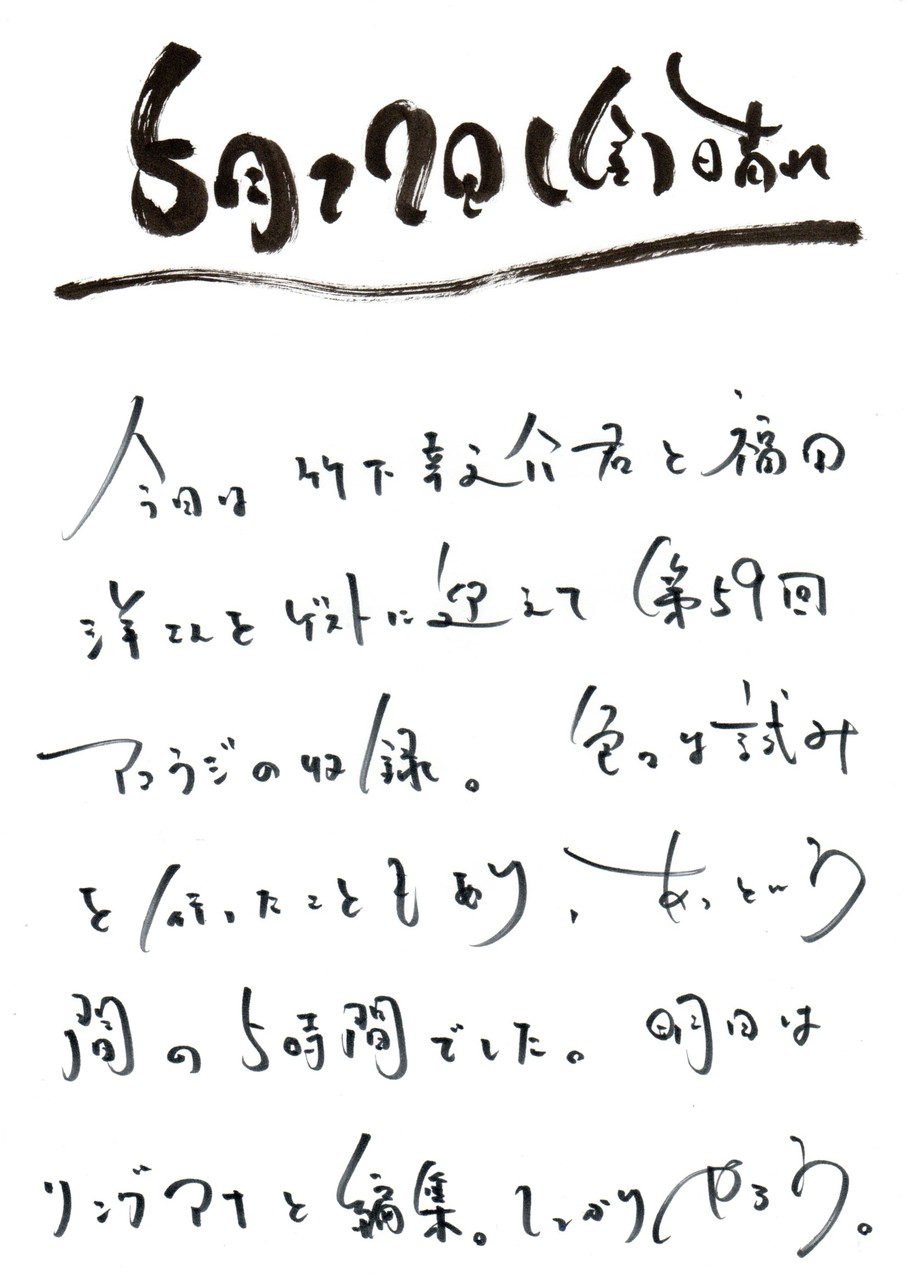 5月27日(金)晴れ
今日は竹下幸之介君と福田
洋さんをゲストに迎えて第59回
アコラジの収録。色々試み
を行ったこともあり、あっという
間の5時間でした。明日は
リングアナと編集。しっかりやろう。